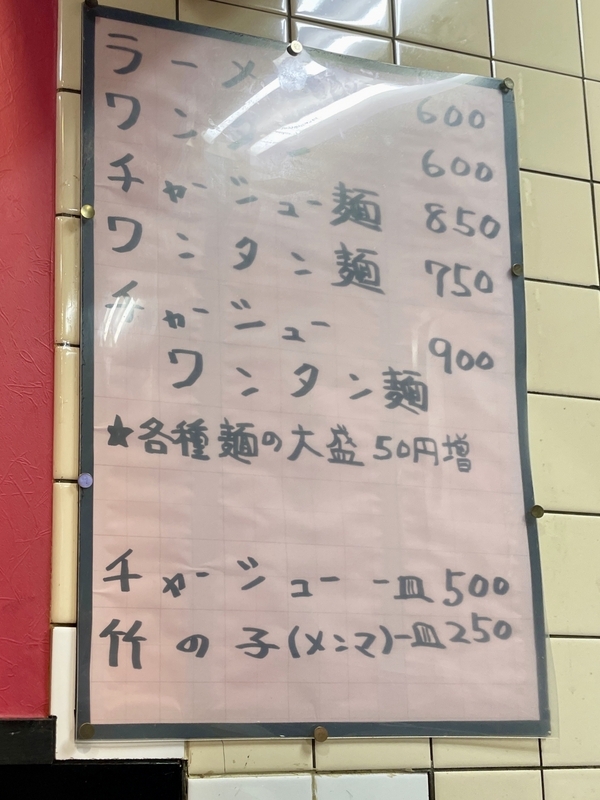 ラーメン 600
ワンタン 600
チャーシュー麺 850
ワンタン麺 750
チャーシュー
ワンタン麺 900
★各種麺の大盛 50円増
チャーシュー 一皿 500
竹の子(メンマ)一皿 250